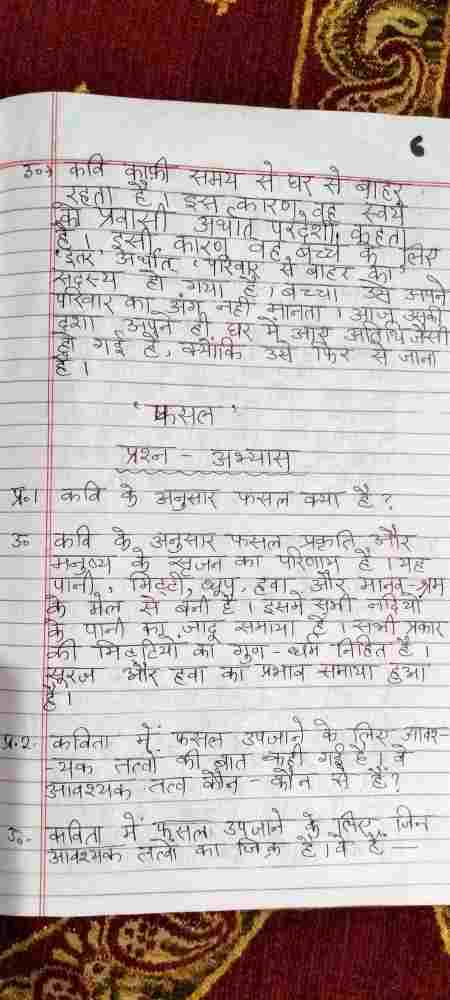 6
उ०→ कवि काफी समय से घर से बाहर
रहता है। इस कारण वह स्वयं
को प्रवासी अर्थात परदेशी कहता
है। इसी कारण वह बच्चे के लिए
'इतर' अर्थात् परिवार से बाहर का
सदस्य हो गया है। बच्चा उसे अपने
परिवार का अंग नहीं मानता। आज उसकी
दशा अपने ही घर में आए अतिथि जैसी
हो गई है, क्योंकि उसे फिर से जाना
है।
'फसल'
प्रश्न - अभ्यास
प्र०1 कवि के अनुसार फसल क्या है?
उ० कवि के अनुसार फसल प्रकृति और
मनुष्य के सृजन का परिणाम है। यह
पानी, मिट्टी, धूप, हवा और मानव-श्रम
के मेल से बनी है। इसमें सभी नदियों
के पानी का जादू समाया है। सभी प्रकार
की मिट्टियों का गुण-धर्म निहित है।
सूरज और हवा का प्रभाव समाया हुआ
है।
प्र.2. कविता में फसल उपजाने के लिए आवश-
-यक तत्वों की बात कही गई है। वे
आवश्यक तत्व कौन-कौन से हैं?
उ०- कविता में फसल उपजाने के लिए जिन
आवश्यक तत्वों का जिक्र है। वे हैं —